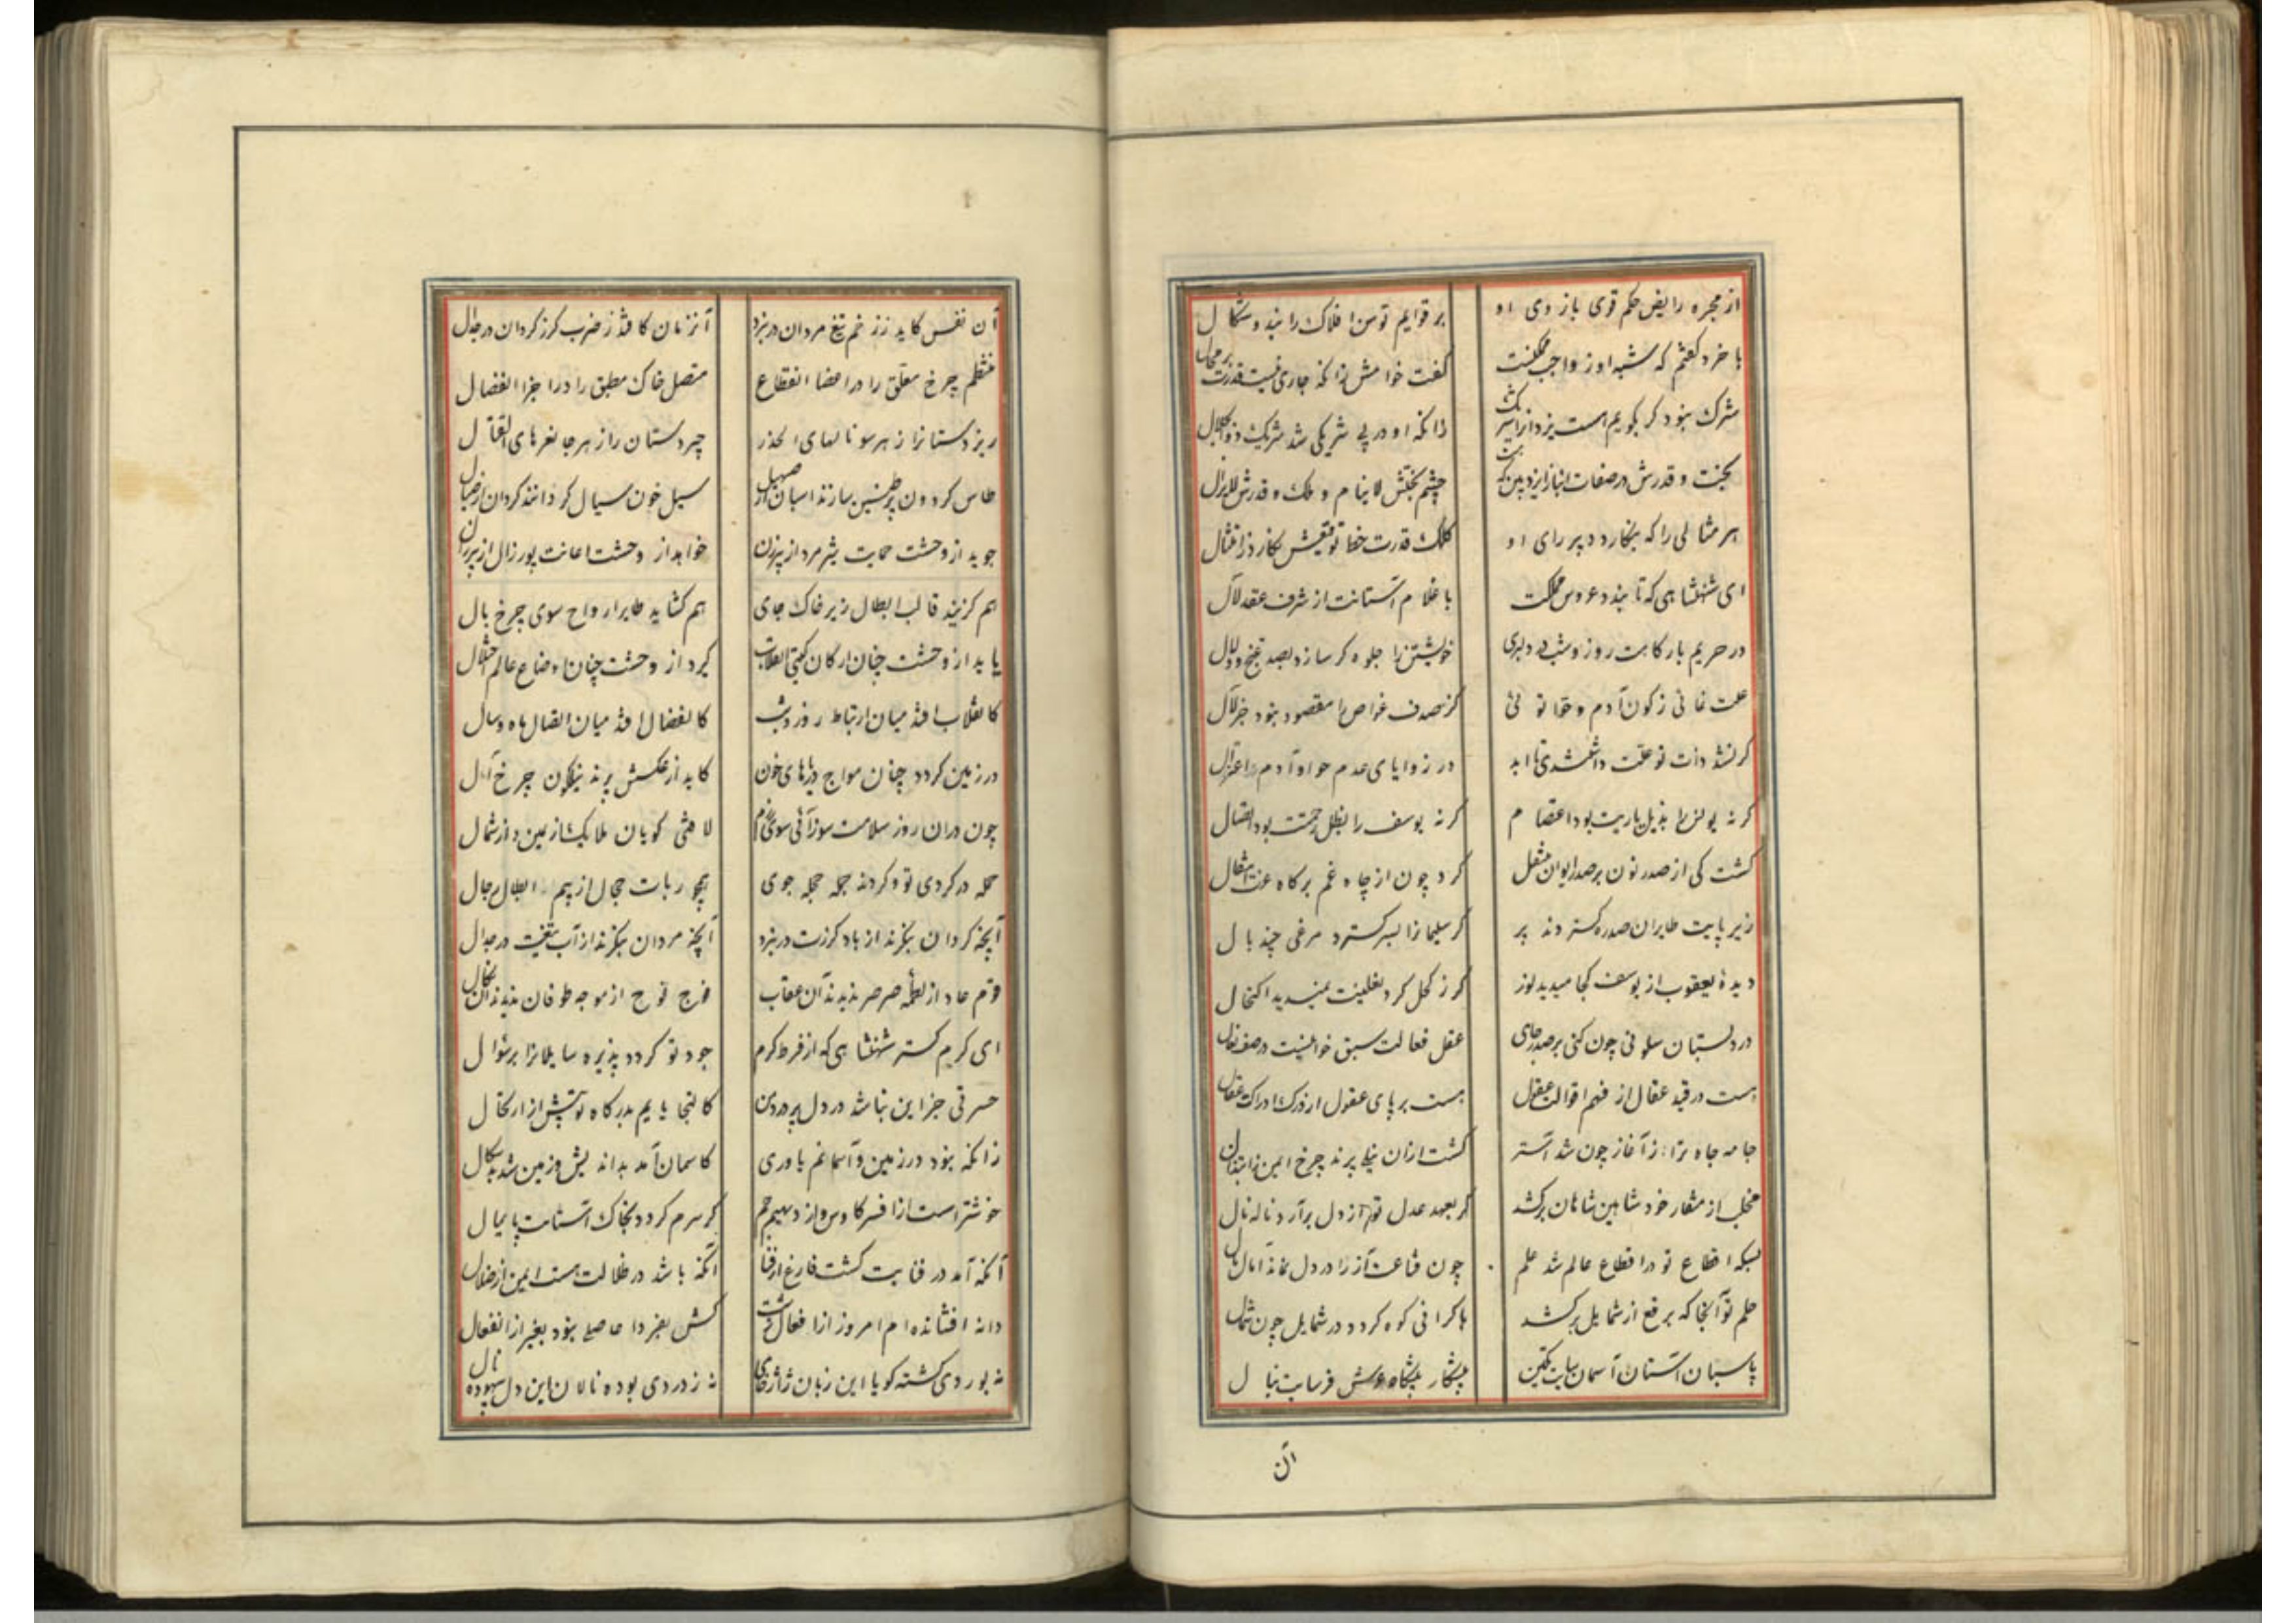 از مجره رایض حکم قوی بازوی او بر قوایم توسن افلاک را بندد شکال
با خرد گفتم که شبه او ز واجب ممکنست گفت خامش زانکه جاری نیست قدرت بر محال
شرک نبود گر بگویم هست یزدانرا شریک زانکه او در بی شریکی شد شریک ذوالجلال
بخت و قدرش در صفات انباز ایزد بین که هست چشم بختش لاینام و ملک و قدرش لایزال
هر مثالی را که بنگارد دبیر رای او کلک قدرت خط توقیعش نگارد ز امتثال
ای شهنشاهی که تا بندد عروس مملکت با غلام آستانت از شرف عقد لآل
در حریم بارگاهت روز و شب در دلبری خویشتن را جلوه گر سازد بصد غنج و دلال
علت غائی ز کون آدم و حوا توئی کز صدف غواص را مقصود نبود جز لآل
گر نشد ذات تو علت داشتندی تا ابد در زوایای عدم حوا و آدم اعتزال
گر نه یونس را بذیل یاریت بود اعتصام گر نه یوسف را بظل رحمتت بود اتصال
گشت کی از صدر نون بر صدر ایوان منتقل کرد چون از چاه غم بر گاه عزت انتقال
زیر پایت طایران صدره گستردند پر گر سلیمانرا بسر گسترد مرغی چند بال
دیدهٔ یعقوب از یوسف کجا میدید نور گر ز کحل گرد نعلینت نمیدید اکتحال
در دبستان سلونی چون کنی بر صدر جای عقل فعالت سبق خوانیست در صف نعال
هست در قید عقال از فهم اقوالت عقول هست بر پای عقول از درک ادراکت عقال
جامه جاه ترا ز آغاز چون شد آستر گشت ازان نیلی پرند چرخ ایمن ز ابتذال
مخلب از منقار خود شاهین شاهان برکشد گر بعهد عدل تو از دل برآرد ناله نال
بسکه اقطاع تو در اقطاع عالم شد علم چون قناعت آز را در دل نماند آمال مال
حلم تو آنجا که برقع از شمایل برکشد با گرانی کوه گردد در شمایل چون شمال
پاسبان آستان آسمان سایت تکین پیشکار پیشگاه عرش فرسایت نیال
آن
آن نفس کاید ز زخم تیغ مردان در نبرد آنزمان کافتد ز ضرب گرز گردان در جدال
منتظم چرخ معلق را در اعضا انقطاع متصل خاک مطبق را در اجزا انفصال
ریزدستانرا ز هر سو نالهای الحذر چیردستان را ز هر جا نعرهای القتال
طاس گردون پر طنین سازند اسبان از صهیل سیل خون سیال گردانند گردان از نصال
جوید از وحشت حمایت شیر مرد از پیرزن خواهد از دحشت اعانت پور زال از پیر زال
هم گزیند قالب ابطال زیر خاک جای هم گشاید طایر ارواح سوی چرخ بال
یابد از وحشت چنان ارکان گیتی انقلاب گیرد از وحشت چنان اوضاع عالم اختلال
کانقلاب افتد میان ارتباط روز و شب کانفصال افتد میان اتصال ماه و سال
در زمین گردد چنان مواج دریاهای خون کاید از عکسش پرند نیلگون چرخ آل
چون دران روز سلامت سوز آئی سوی رزم لافتی گویان ملایک از یمین و از شمال
حمله در گردی تو و گردند جمله حجله جوی همچو ربات حجال از بیم ابطال رجال
آنچه گردان بنگرند از باد گرزت در نبرد آنچه مردان بنگرند از آب تیغت در جدال
قوم عاد از لطمه صرصر ندیدند آن عقاب فوج نوح از موجه طوفان ندیدند آن نکال
ای کریم گستر شهنشاهی که از فرط کرم جود تو گردد پذیره سایلانرا بر سؤال
حسرتی جز این نباشد در دل پر درد من کالتجا یابم بدرگاه تو پیش از ارتحال
زانکه نبود در زمین و آسمانم یاوری کاسمان آمد بداندیش و زمین شد بدسگال
خوشتر است از افسر کاوس و از دیهیم جم گر سرم گردد بخاک آستانت پایمال
آنکه آمد در فنایت گشت فارغ از فنا آنکه باشد در ظلالت هست ایمن از ضلال
دانه افشانده ام امروز از افعال زشت کش بفردا حاصلی نبود بغیر از انفعال
نه بوردی گشته گویا این زبان ژاژخای نه ز دردی بوده نالان این دل بیهوده نال